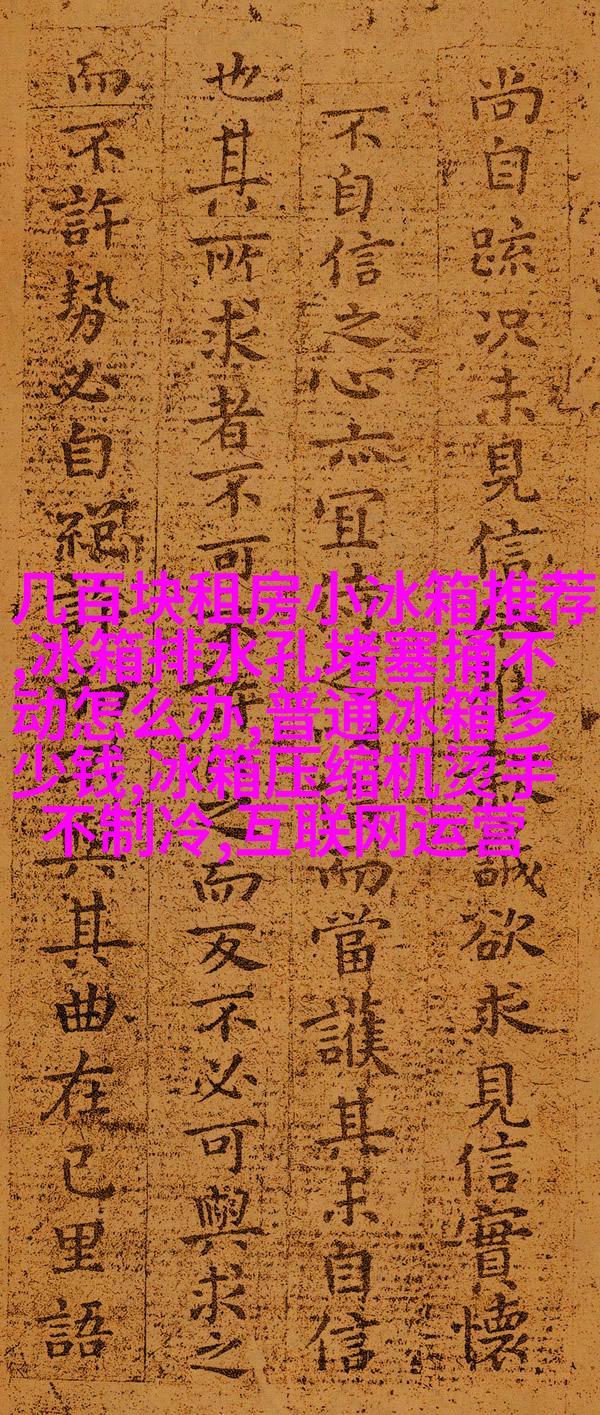 尚自踈况未見信誠欲求見信實懷
不自信之心亦宜而當護其未自信
也其所求者不可之而反不必可與求之
而不許勢必自絕其曲在己里語
几百块租房小冰箱推荐
,冰箱排水孔堵塞捅不
动怎么办,普通冰箱多
少钱,冰箱压缩机烫手
不制冷,互联网运营